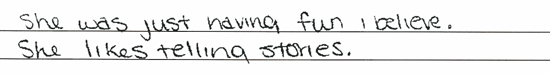 She was just having fun i believe.
She likes telling stories.